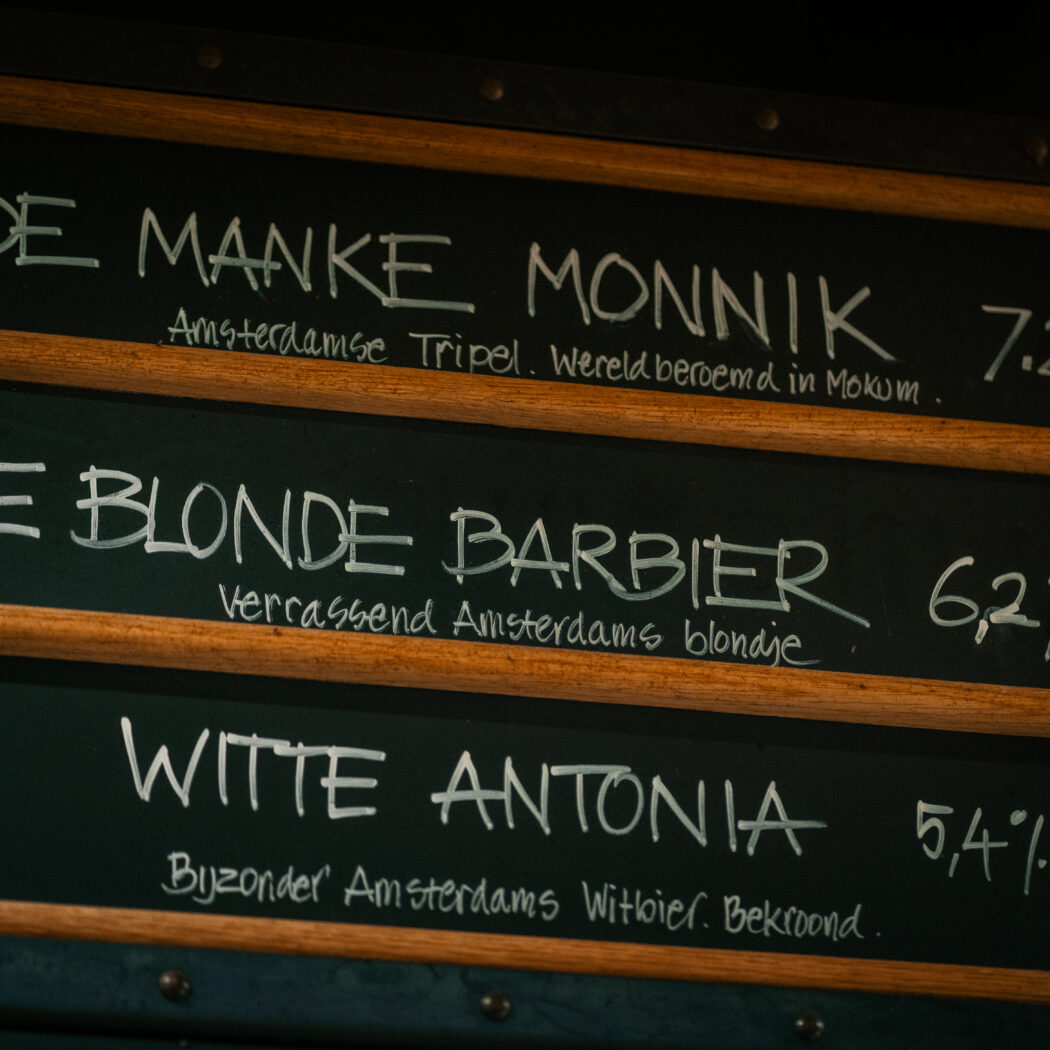 DE MANKE MONNIK 7.2
Amsterdamse Tripel. Wereldberoemd in Mokum.
E BLONDE BARBIER 6,2
Verrassend Amsterdams blondje
WITTE ANTONIA 5,4%
Bijzonder Amsterdams Witbier. Bekroond.